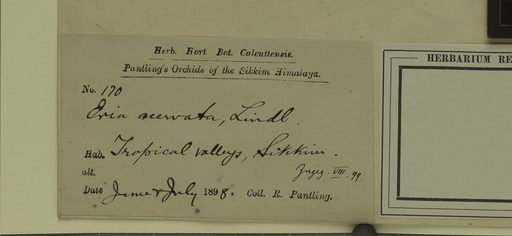 Herb. Hort Bot. Calcuttensis.
Pantling's Orchids of the Sikkim Himalaya.
No. 170
Eria acervata, Lindl.
Hab. Tropical valleys, Sikkim.
alt.
VIII. 99
Date June & July 1898. Coll. R. Pantling.
HERBARIUM RE